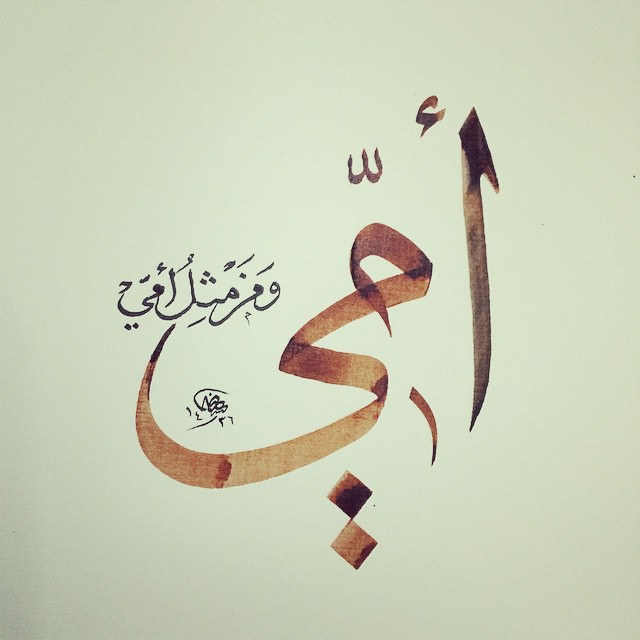 أمّي
وَمَن مثلِ أُمّيَ
١٤٣٦